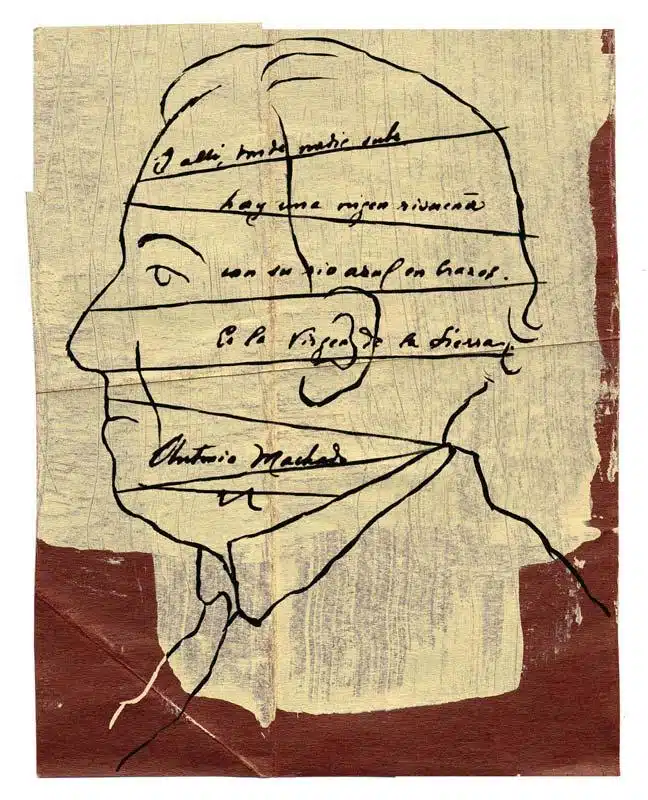 Y allí, donde nadie sube
hay una virgen risueña
con su río azul en brazos.
Es la Virgen de la Sierra.
Antonio Machado